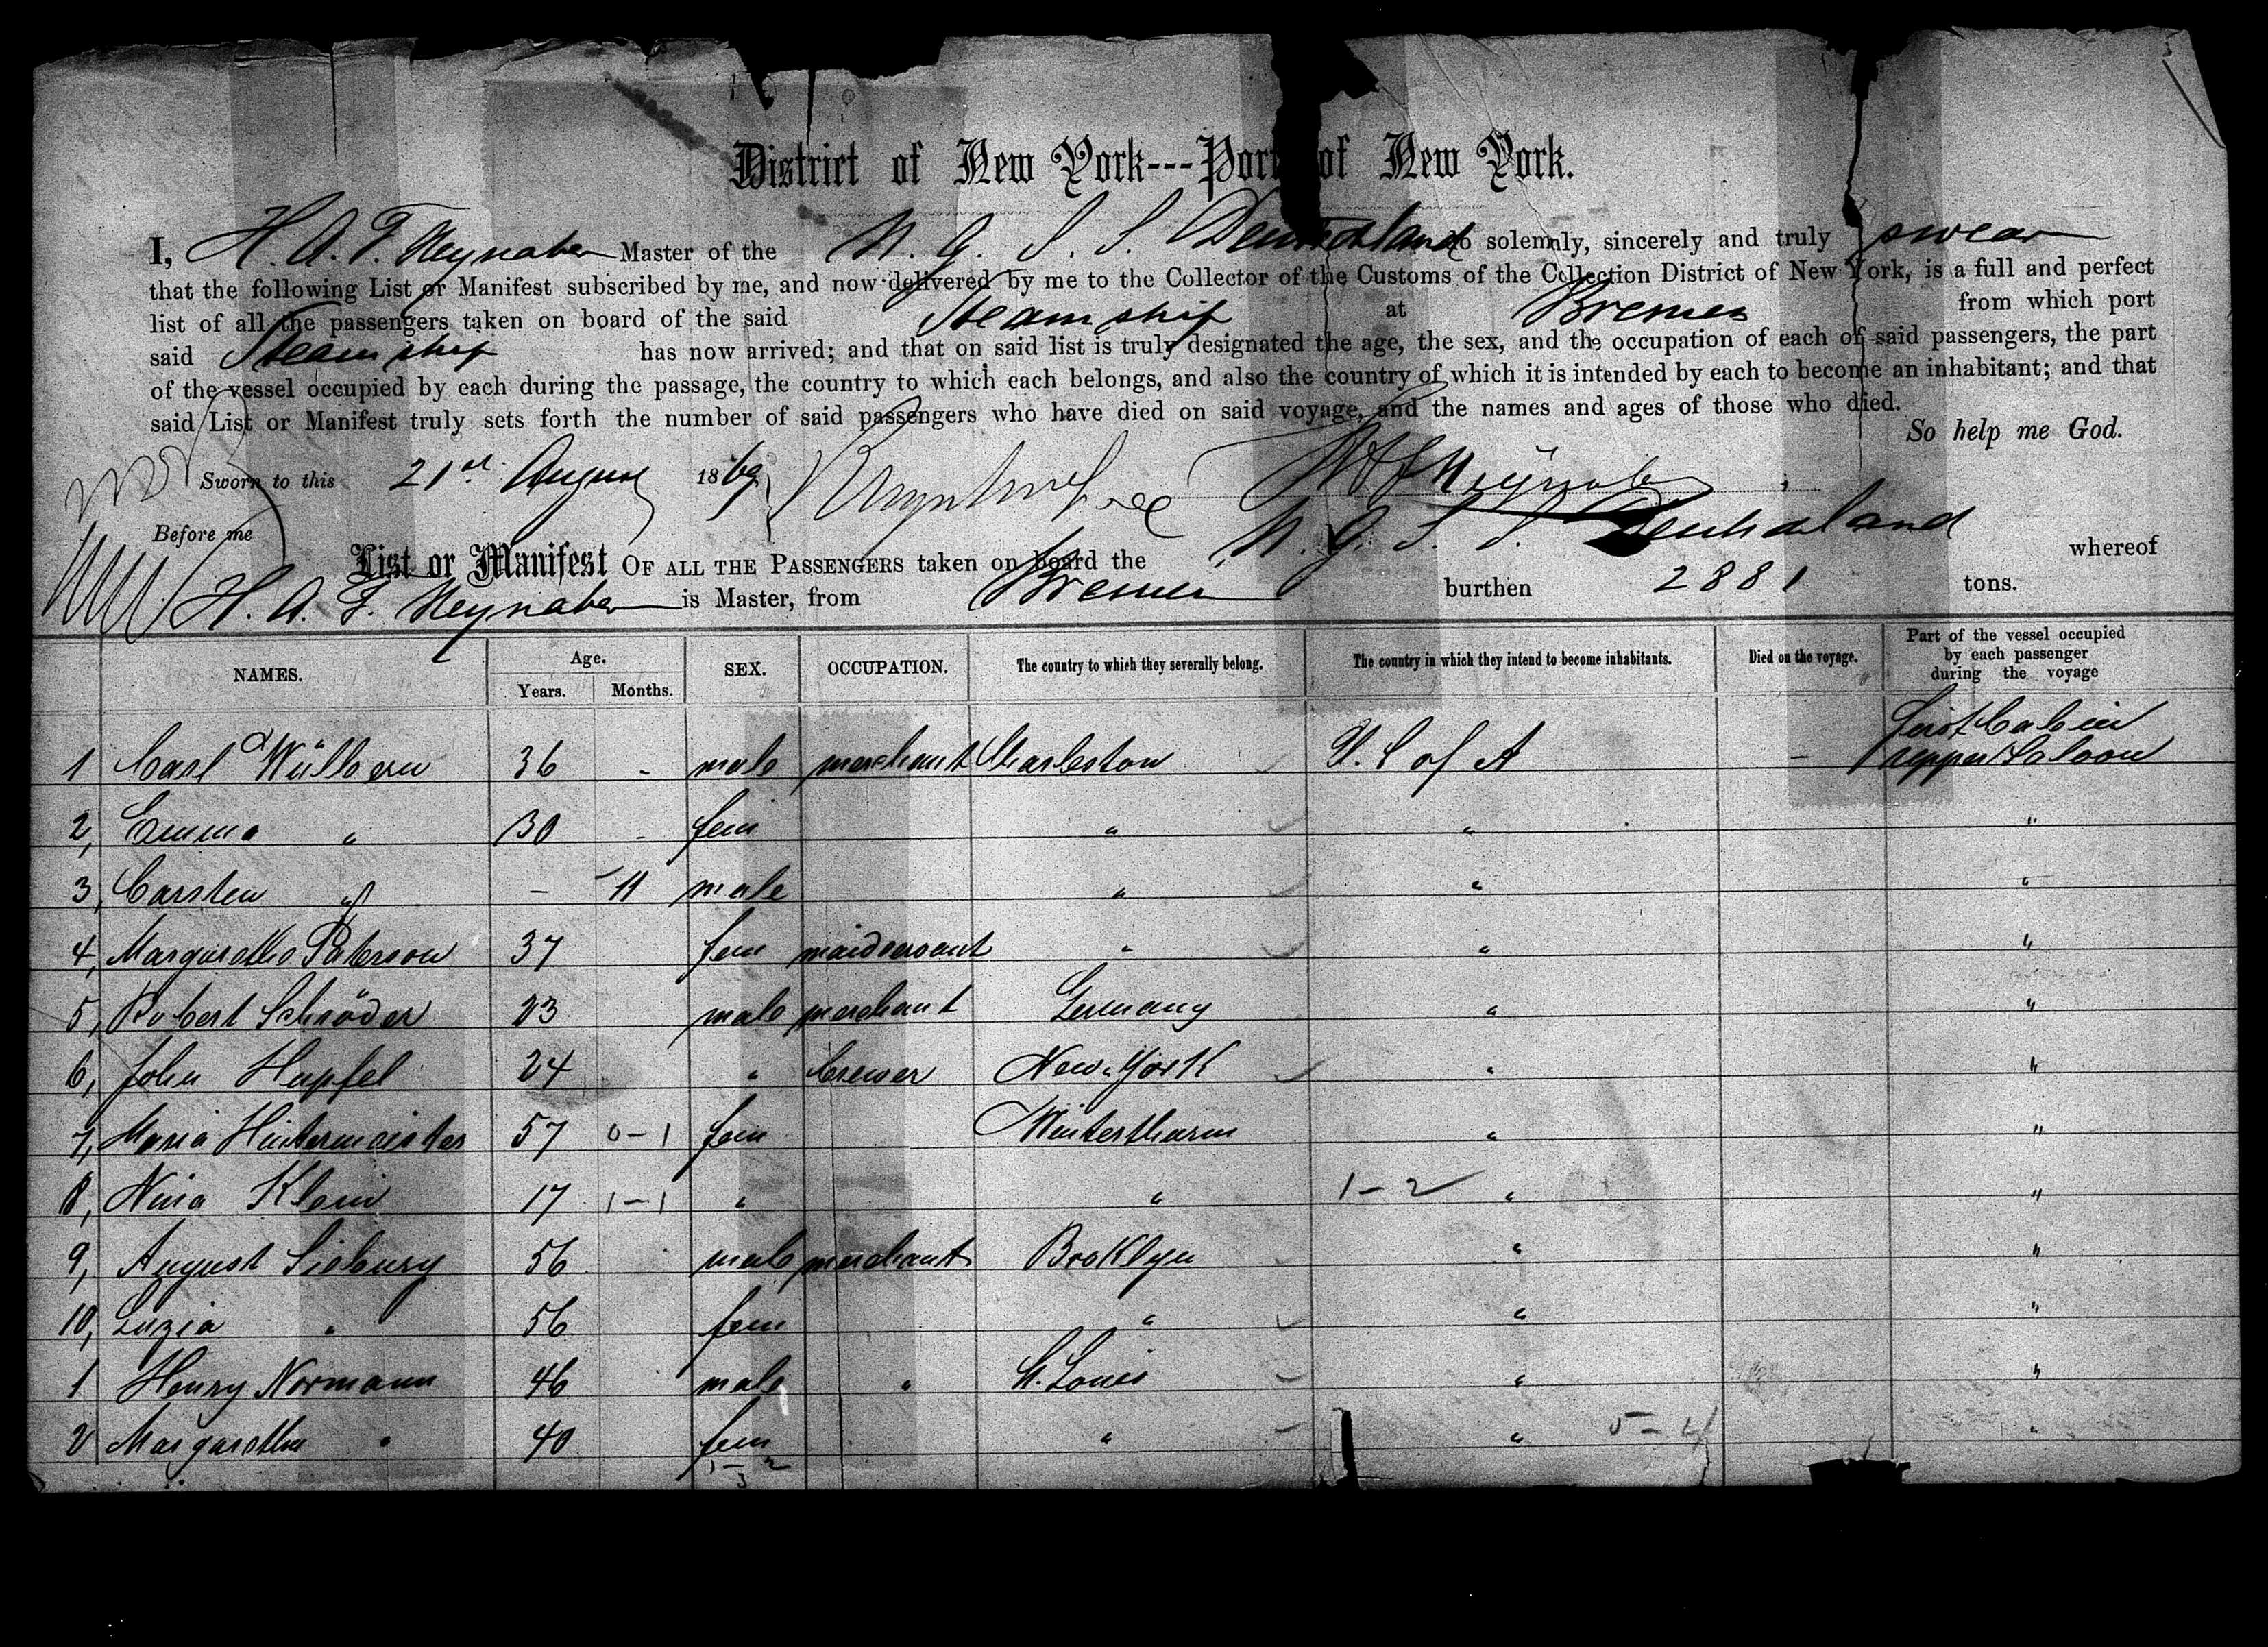 District of New York---Port of New York.
I, H. A. F. Neynaber Master of the N. G. S. S. Deutschland do solemnly, sincerely and truly swear
that the following List or Manifest subscribed by me, and now delivered by me to the Collector of the Customs of the Collection District of New York, is a full and perfect
list of all the passengers taken on board of the said Steamship at Bremen from which port
said Steamship has now arrived; and that on said list is truly designated the age, the sex, and the occupation of each of said passengers, the part
of the vessel occupied by each during the passage, the country to which each belongs, and also the country of which it is intended by each to become an inhabitant; and that
said List or Manifest truly sets forth the number of said passengers who have died on said voyage, and the names and ages of those who died.
So help me God.
Sworn to this 21st August 1869 Neynaber
Before me
List or Manifest OF ALL THE PASSENGERS taken on board the N. G. S. S. Deutschland whereof
H. A. F. Neynaber is Master, from Bremen burthen 2881 tons.
NAMES. Age. Years. Months. SEX. OCCUPATION. The country to which they severally belong. The country in which they intend to become inhabitants. Died on the voyage. Part of the vessel occupied by each passenger during the voyage
1 Carl Wülbern 36 - male merchant Charleston U. S of A - First Cabin upper Saloon
2, Emma " 30 - fem " " "
3, Carsten " - 11 male " " "
4, Margarethe Peterson 37 fem maidservant " " "
5, Robert Schröder 23 male merchant Germany " "
6, John Hupfel 24 " brewer New-York " "
7, Maria Hintermeister 57 0-1 fem Winterthurm " "
8, Nina Klein 17 1-1 " " 1-2 " "
9, August Sieburg 56 male merchant Brooklyn " "
10, Luzia " 56 fem " " "
1 Henry Normann 46 male " St. Louis " "
2 Margaretha " 40 fem " " 5-4 "